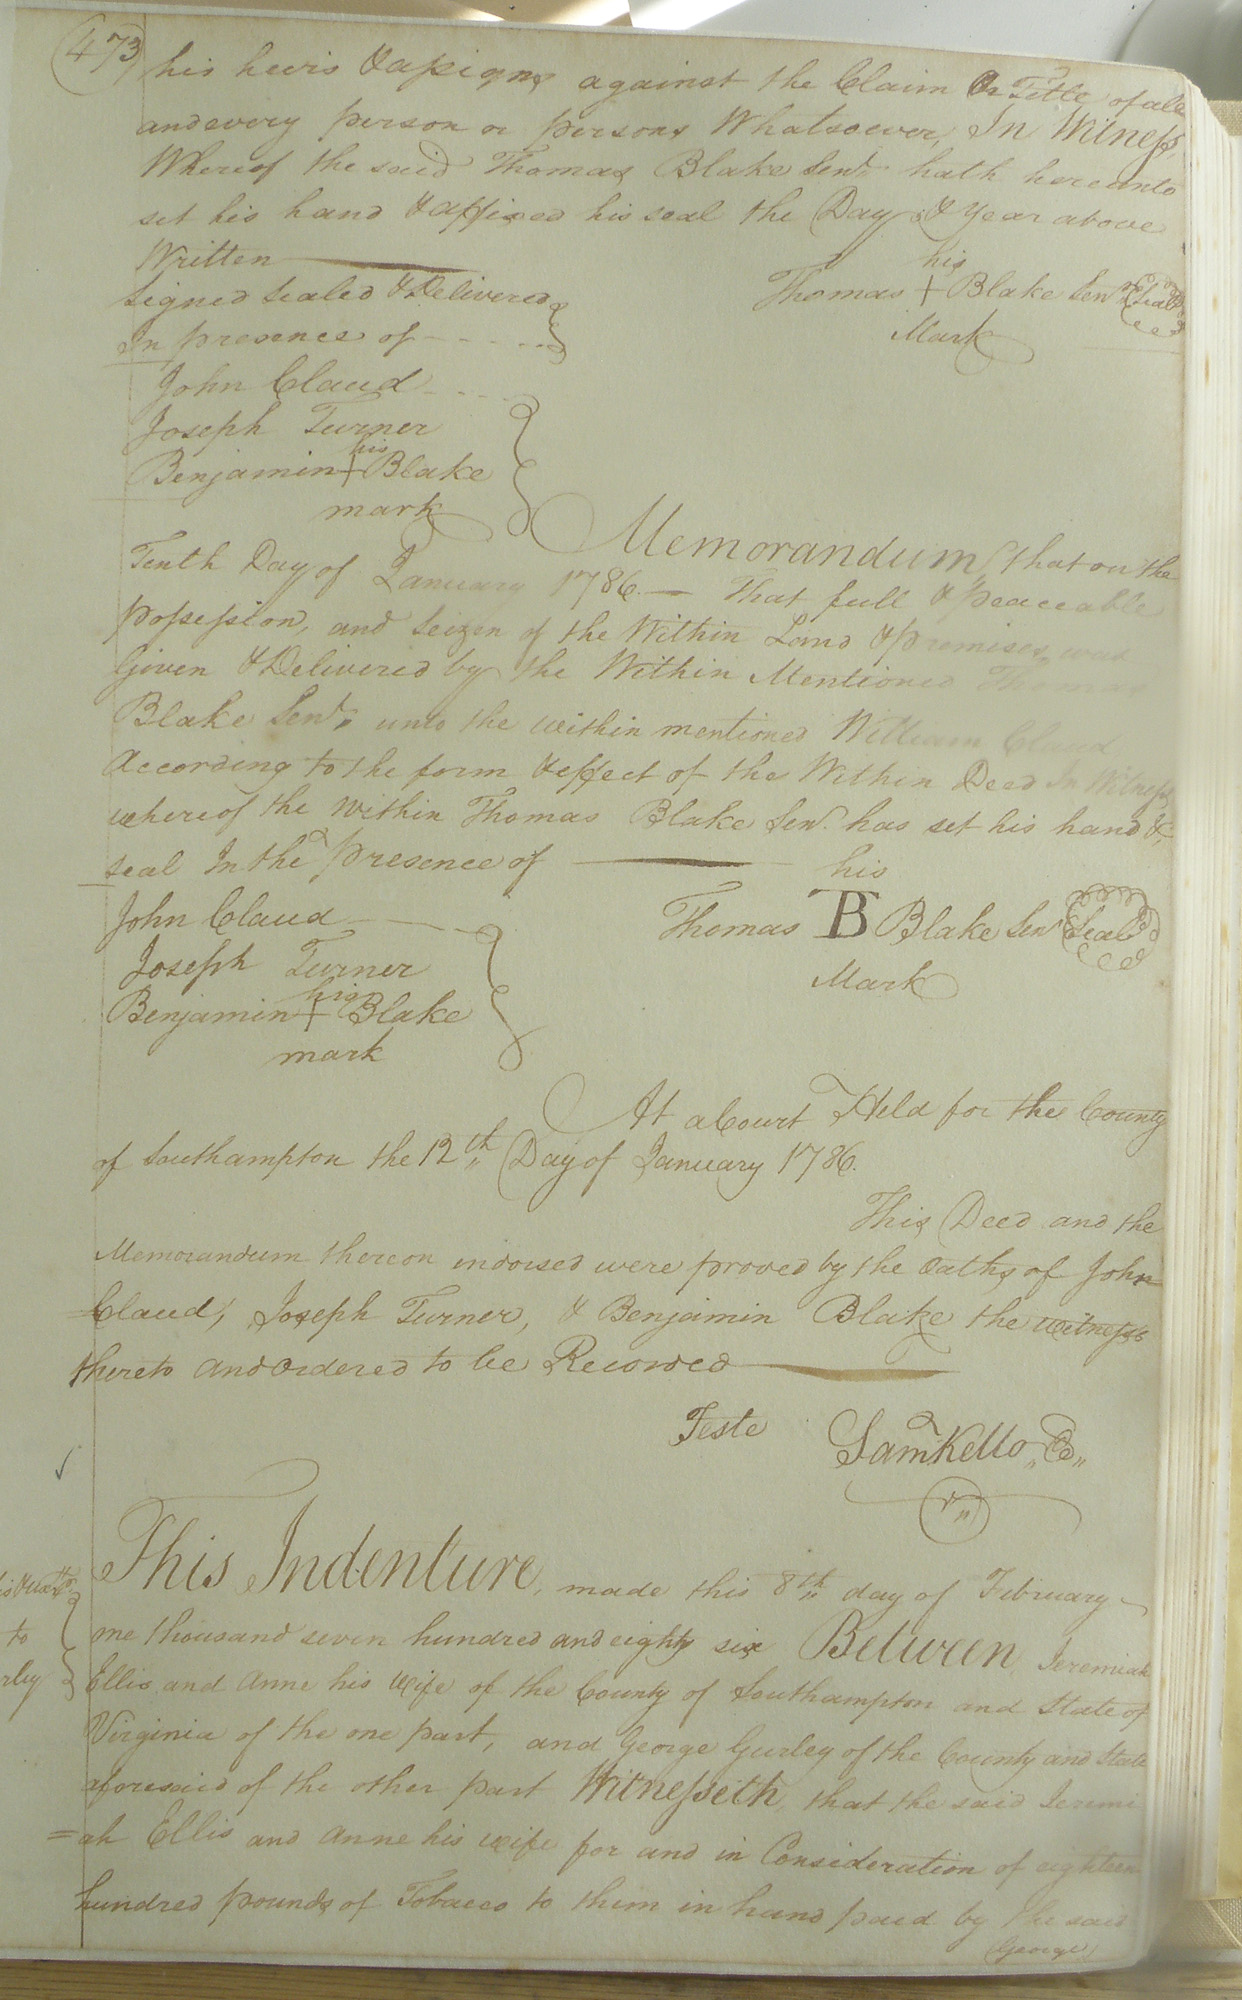 473
his heirs & assigns against the Claim Or Title of all
and every person or persons Whatsoever, In Witness,
Whereof the said Thomas Blake Senr. hath hereunto
set his hand & affixed his seal the Day & Year above
Written
Signed Sealed & Delivered
In presence of
his
Thomas + Blake Senr Seal
Mark
John Claud
Joseph Turner
his
Benjamin + Blake
mark
Memorandum, that on the
Tenth Day of January 1786. — That full & peaceable
possession, and Seizen of the Within Land & premises was
Given & Delivered by the Within Mentioned Thomas
Blake Senr. unto the within mentioned William Claud
According to the form & effect of the Within Deed In Witness,
whereof the Within Thomas Blake Senr. has set his hand &
seal In the presence of
his
Thomas TB Blake Senr Seal
Mark
John Claud
Joseph Turner
his
Benjamin + Blake
mark
At a Court Held for the County
of Southampton the 12th Day of January 1786.
This Deed and the
Memorandum thereon indorsed were proved by the Oaths of John
Claud, Joseph Turner, & Benjamin Blake the witnesses
thereto and Ordered to be Recorded
Teste Saml Kello, Ck
This Indenture, made this 8th day of February
one thousand seven hundred and eighty six Between Jeremiah
to
Ellis and Anne his Wife of the County of Southampton and State of
Virginia of the one part, and George Gurley of the County and State
aforesaid of the other part Witnesseth, that the said Jeremi
=ah Ellis and Anne his wife for and in Consideration of eighteen
hundred pounds of Tobacco to them in hand paid by the said
George